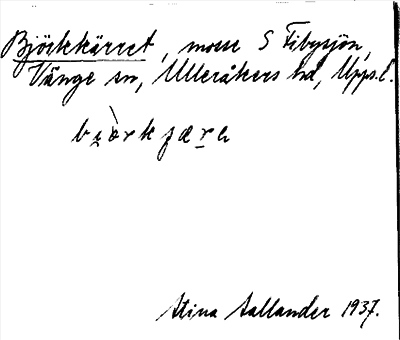 Björkkärret, mosse S Fibysjön,
Vänge sn, Ulleråkers hd, Upps. l.
Stina Sallander 1937.